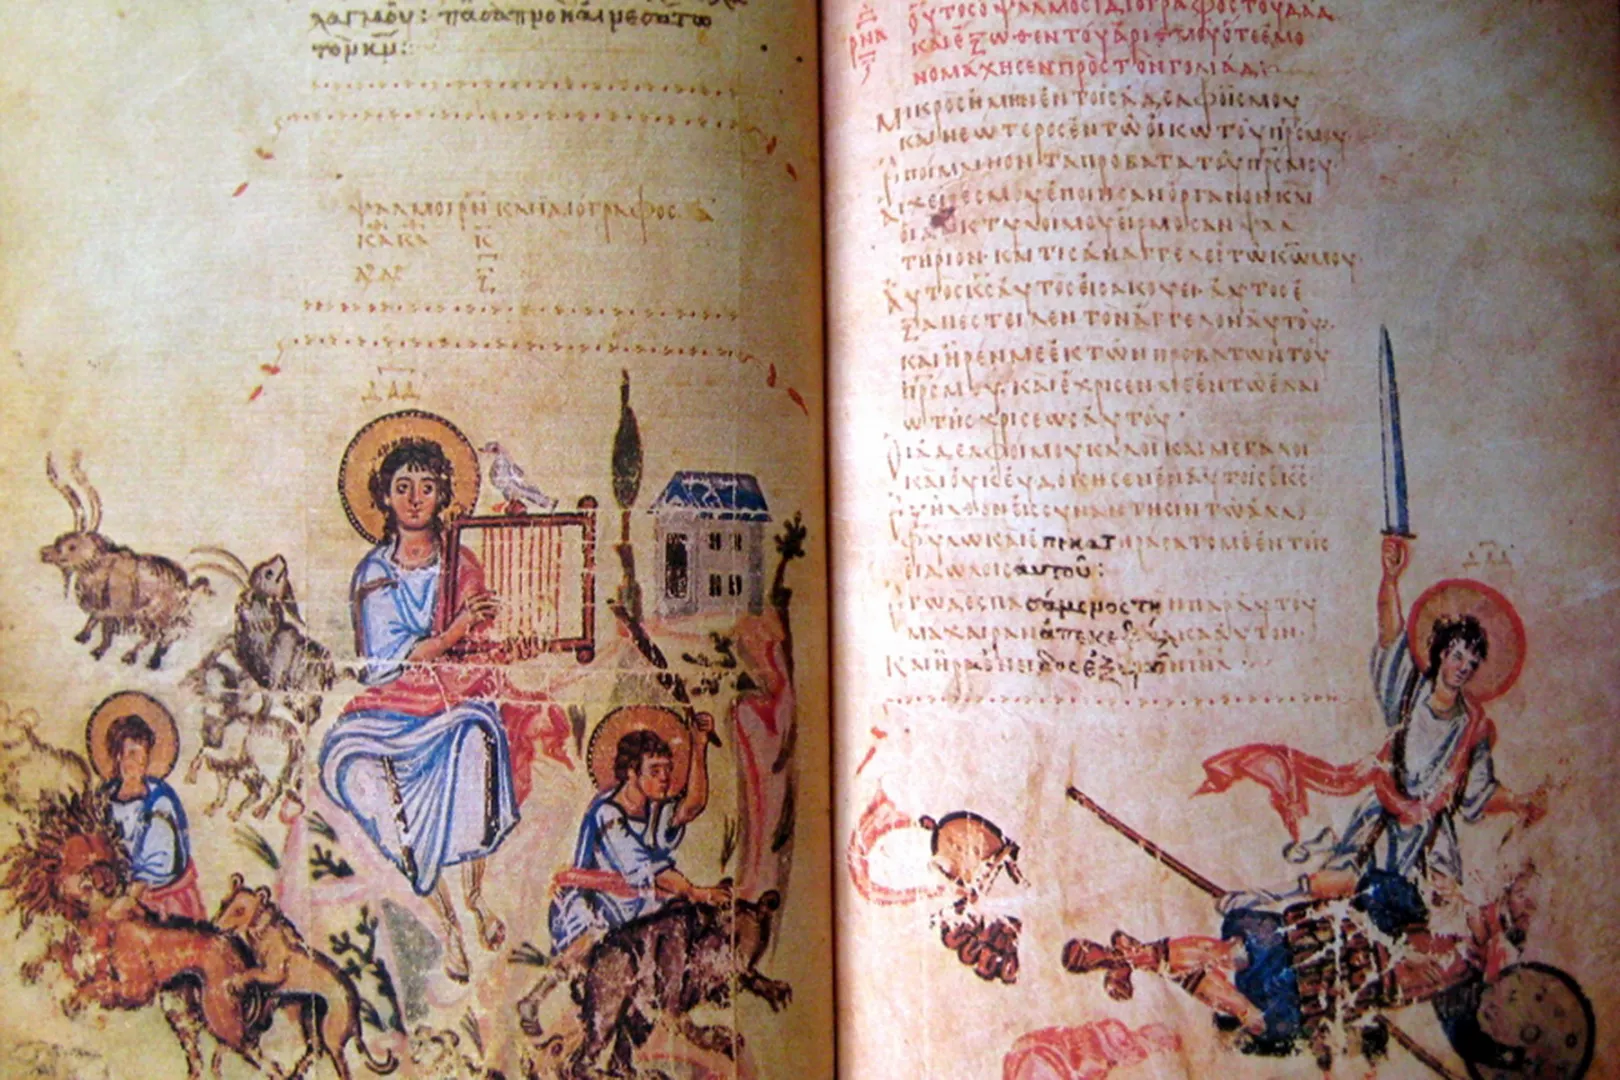 λαγμοῦ: πᾶσα πνοὴ αἰνεσάτω
τὸν κ̅ν̅:
ψαλμοι ρ̅ν̅ καὶ ἰδιόγραφος α̅
Δ̅Α̅Δ̅
οὗτος ὁ ψαλμὸς ἰδιόγραφος τοῦ δ̅α̅δ̅
καὶ ἔξωθεν τοῦ ἀριθμοῦ ὅτε ἐμο
νομάχησεν πρὸς τὸν γολιάδ:
Μικρὸς ἤμην ἐν τοῖς ἀδελφοῖς μου
καὶ νεώτερος ἐν τῷ οἴκω τοῦ π̅ρ̅ς μου
ἐποίμαινον τὰ πρόβατα τοῦ π̅ρ̅ς μου
Αἱ χεῖρες μου ἐποίησαν ὄργανον καὶ
οἱ δάκτυλοί μου ἥρμοσαν ψαλ
τήριον· καὶ τίς ἀναγγελεῖ τῷ κ̅ω̅ μου·
Αὐτὸς κ̅ς̅ αὐτὸς εἰσακούει· αὐτὸς ἐ
ξαπέστειλεν τὸν ἄγγελον αὐτοῦ·
καὶ ἦρεν με ἐκ τῶν προβάτων τοῦ
π̅ρ̅ς μου· καὶ ἔχρισεν με ἐν τῷ ἐλαί
ω τῆς χρίσεως αὐτοῦ·
Οἱ ἀδελφοί μου καλοὶ καὶ μεγάλοι
καὶ οὐκ εὐδόκησεν ἐν αὐτοῖς ὁ κ̅ς̅
Ἐξῆλθον εἰς συνάντησιν τῷ ἀλλο
φύλω καὶ ἐπικατηράσατό με ἐν τοῖς
εἰδώλοις αὐτοῦ:
Ἐγὼ δὲ σπασάμενος τὴν παρ' αὐτοῦ
μάχαιραν ἀπεκεφάλισα αὐτὸν·
Καὶ ἦρα ὄνειδος ἐξ υἱῶν ι̅η̅λ̅·
Δ̅Α̅Δ̅